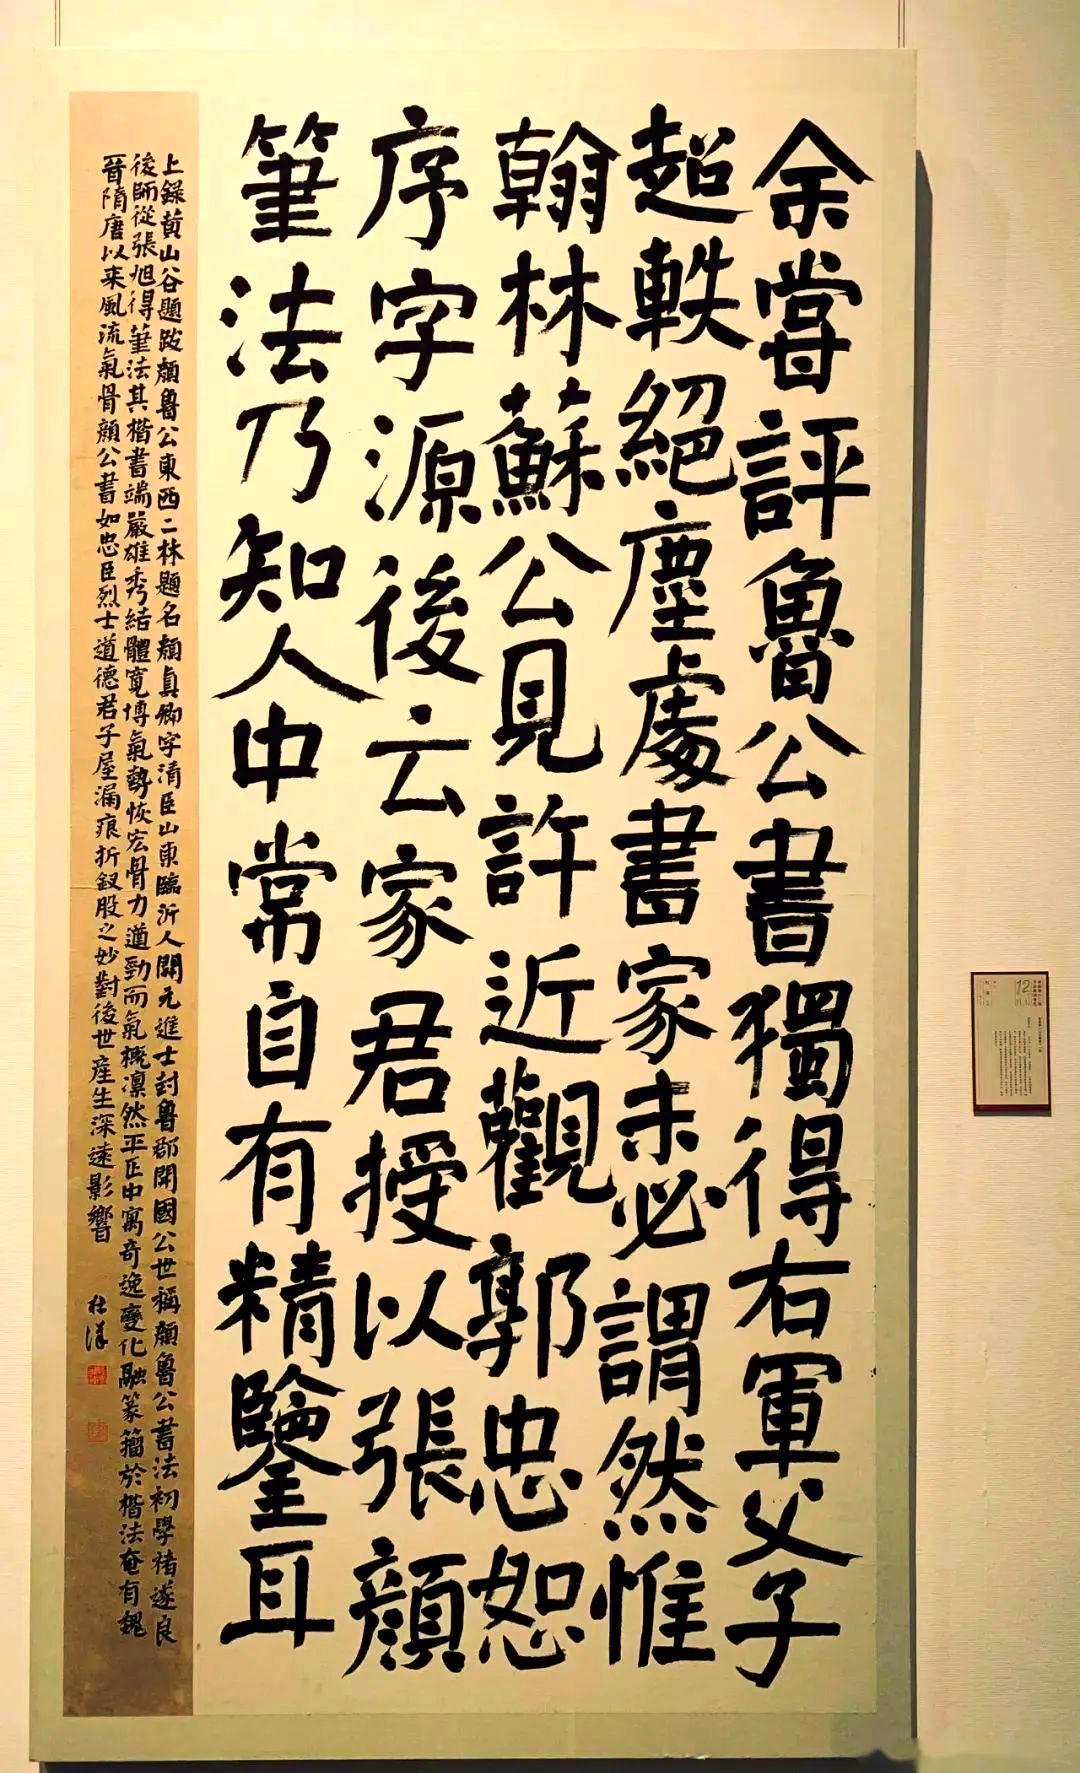 余嘗評魯公書獨得右軍父子
超軼絕塵處書家未必謂然惟
翰林蘇公見許近觀郭忠恕
序字源後云家君授以張顏
筆法乃知人中常自有精鑒耳
上錄黃山谷題跋顏魯公東西二林題名顏真卿字清臣山東臨沂人開元進士封魯郡開國公世稱顏魯公書法初學褚遂良
後師從張旭得筆法其楷書端嚴雄秀結體寬博氣勢恢宏骨力遒勁而氣概凛然平正中寓奇逸變化融篆籀於楷法奄有魏
晉隋唐以来風流氣骨顏公書如忠臣烈士道德君子屋漏痕折釵股之妙對後世產生深遠影響
12